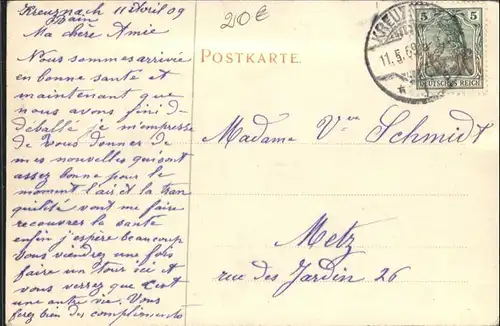 Kreuznach 11 Avril 09
Bain
20 €
Ma chère Amie
Nous sommes arrivie
en bonne santé et
maintenant que
nous avons fini d-
déballé je m'empresse
de vous donner de
mes nouvelles qui sont
assez bonne pour le
moment l'air et la tran
quilité vont me faire
recouvrer la santé
enfin j'espère beaucoup
vous viendrez une fois
faire un tour ici et
vous verrez que c'est
une autre vie. Vous
ferez bien des compliments
POSTKARTE.
KREUZ
11.5.09
5 5
DEUTSCHES REICH
Madame Vve Schmidt
Metz
rue des Jardin 26